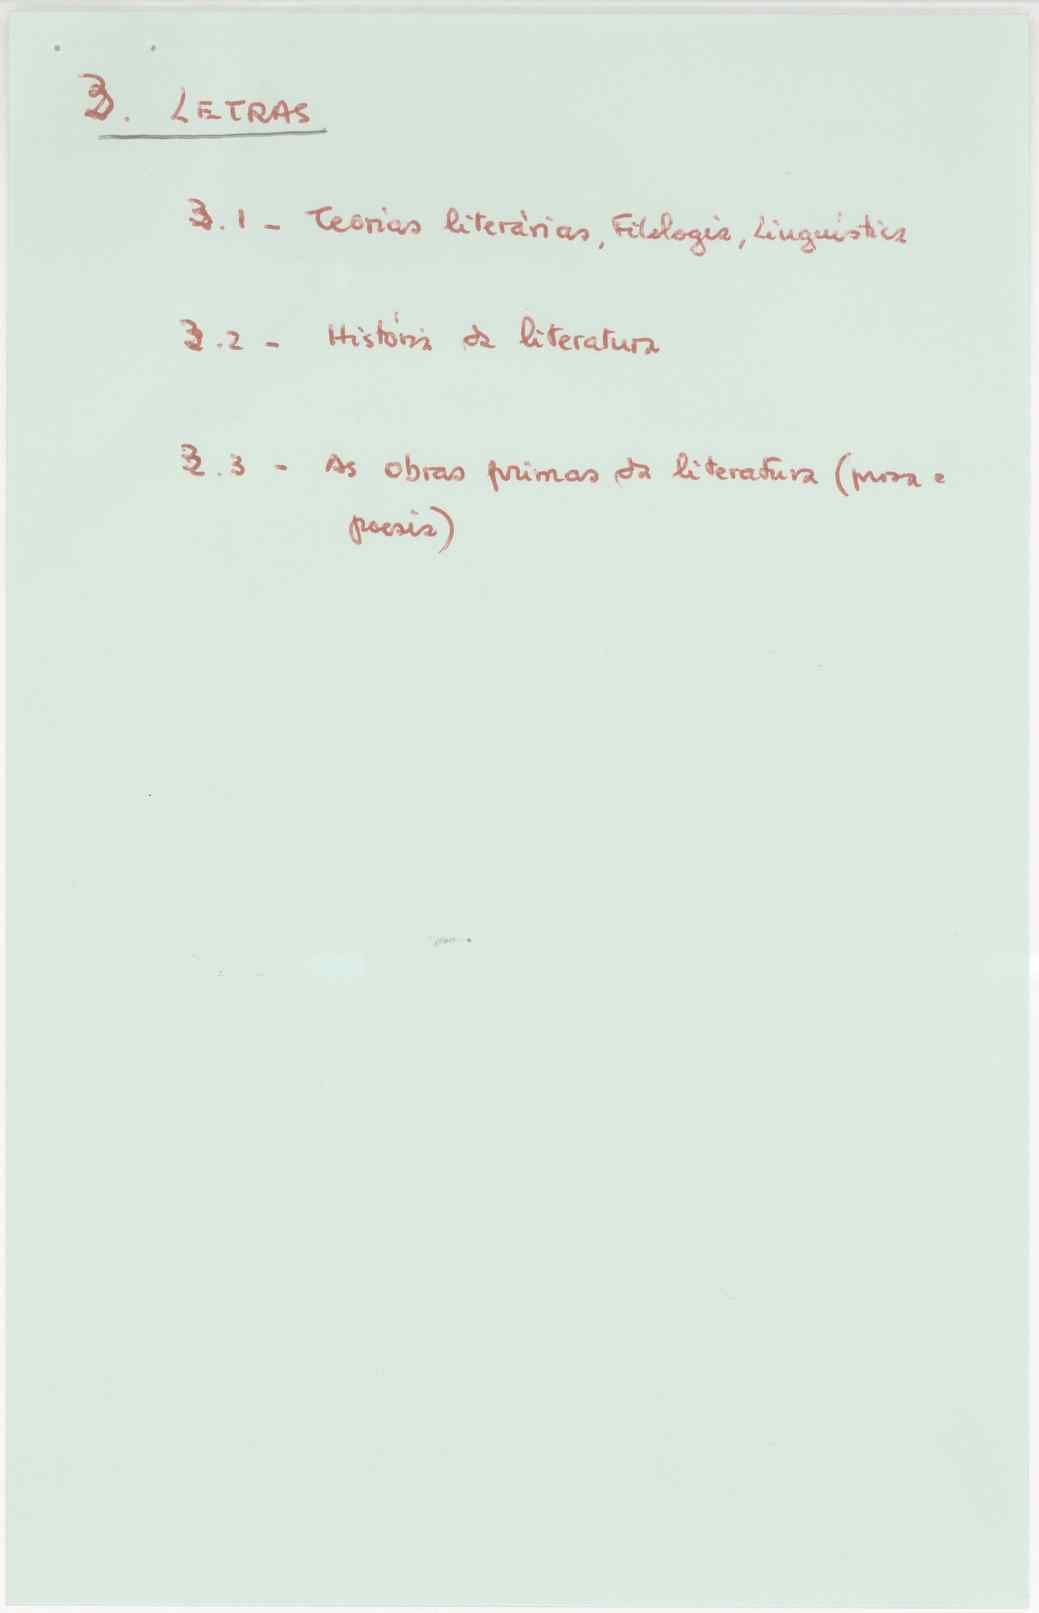 3. LETRAS
3.1 - Teorias literárias, Filologia, Linguística
3.2 - História da literatura
3.3 - As obras primas da literatura (prosa e
poesia)